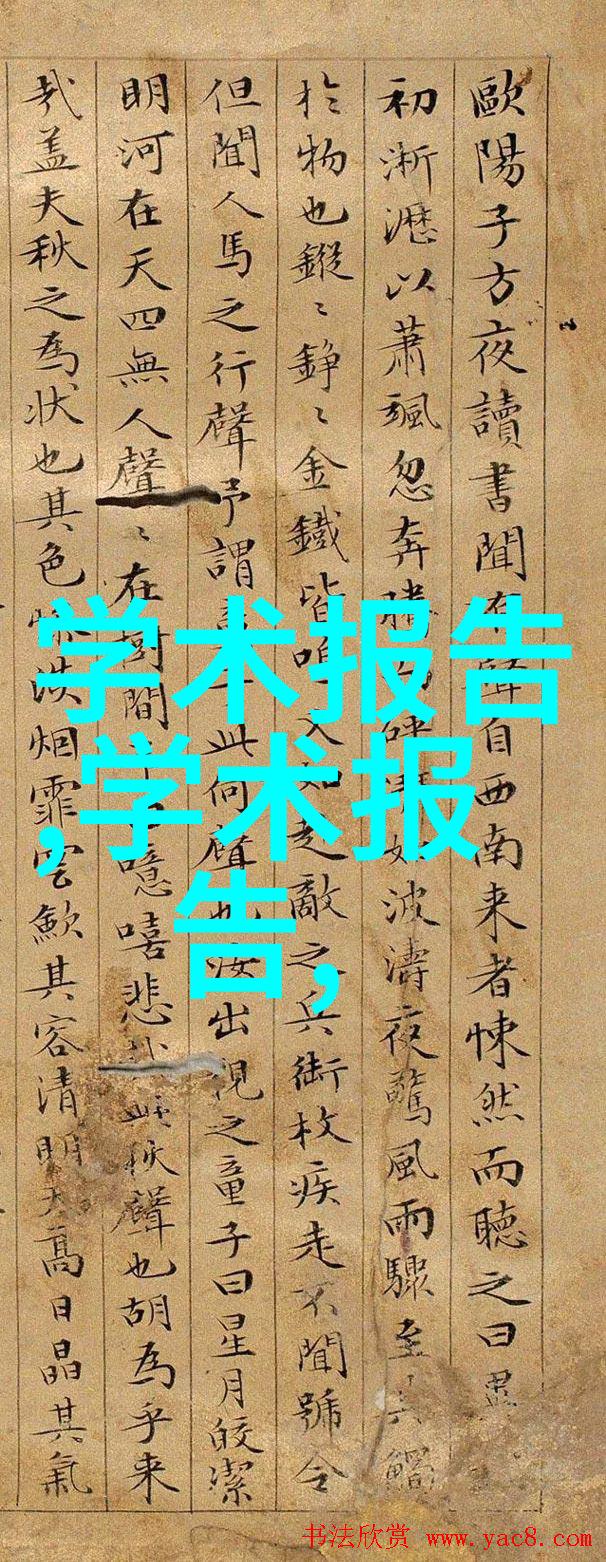 歐陽子方夜讀書聞有聲自西南来者悚然而聽之曰異
初淅瀝以蕭颯忽奔騰而砰湃如波濤夜驚風雨驟至其觸
扵物也鏦〻錚〻金鐵皆鳴又如赴敵之兵銜枚疾走不聞號令
但聞人馬之行聲予謂童子此何聲也汝出視之童子曰星月皎潔
明河在天四無人聲〻在樹間予曰噫嘻悲哉此秋聲也胡為乎来
哉盖夫秋之為状也其色惨淡烟霏雲歛其容清明天髙日晶其氣
学术报告
,学术报
告,
书法欣赏 www.yac8.com